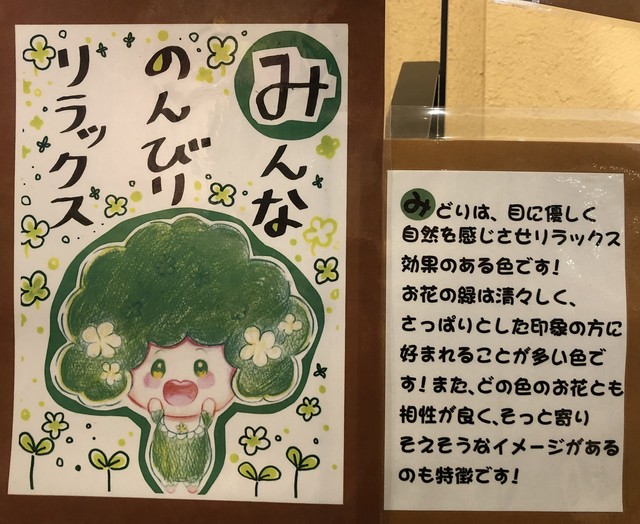 みんな
のんびり
リラックス
みどりは、目に優しく
自然を感じさせリラックス
効果のある色です!
お花の緑は清々しく、
さっぱりとした印象の方に
好まれることが多い色で
す!また、どの色のお花とも
相性が良く、そっと寄り
そえそうなイメージがある
のも特徴です!